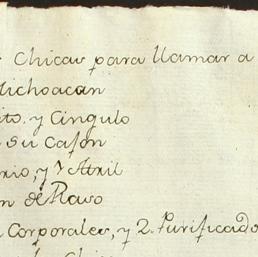 Chicas para llamar a
Michoacan
ito. y Cingulo
su Cajon
rio, y 1 Atril
n de Raso
Corporales, y 2. Purificado